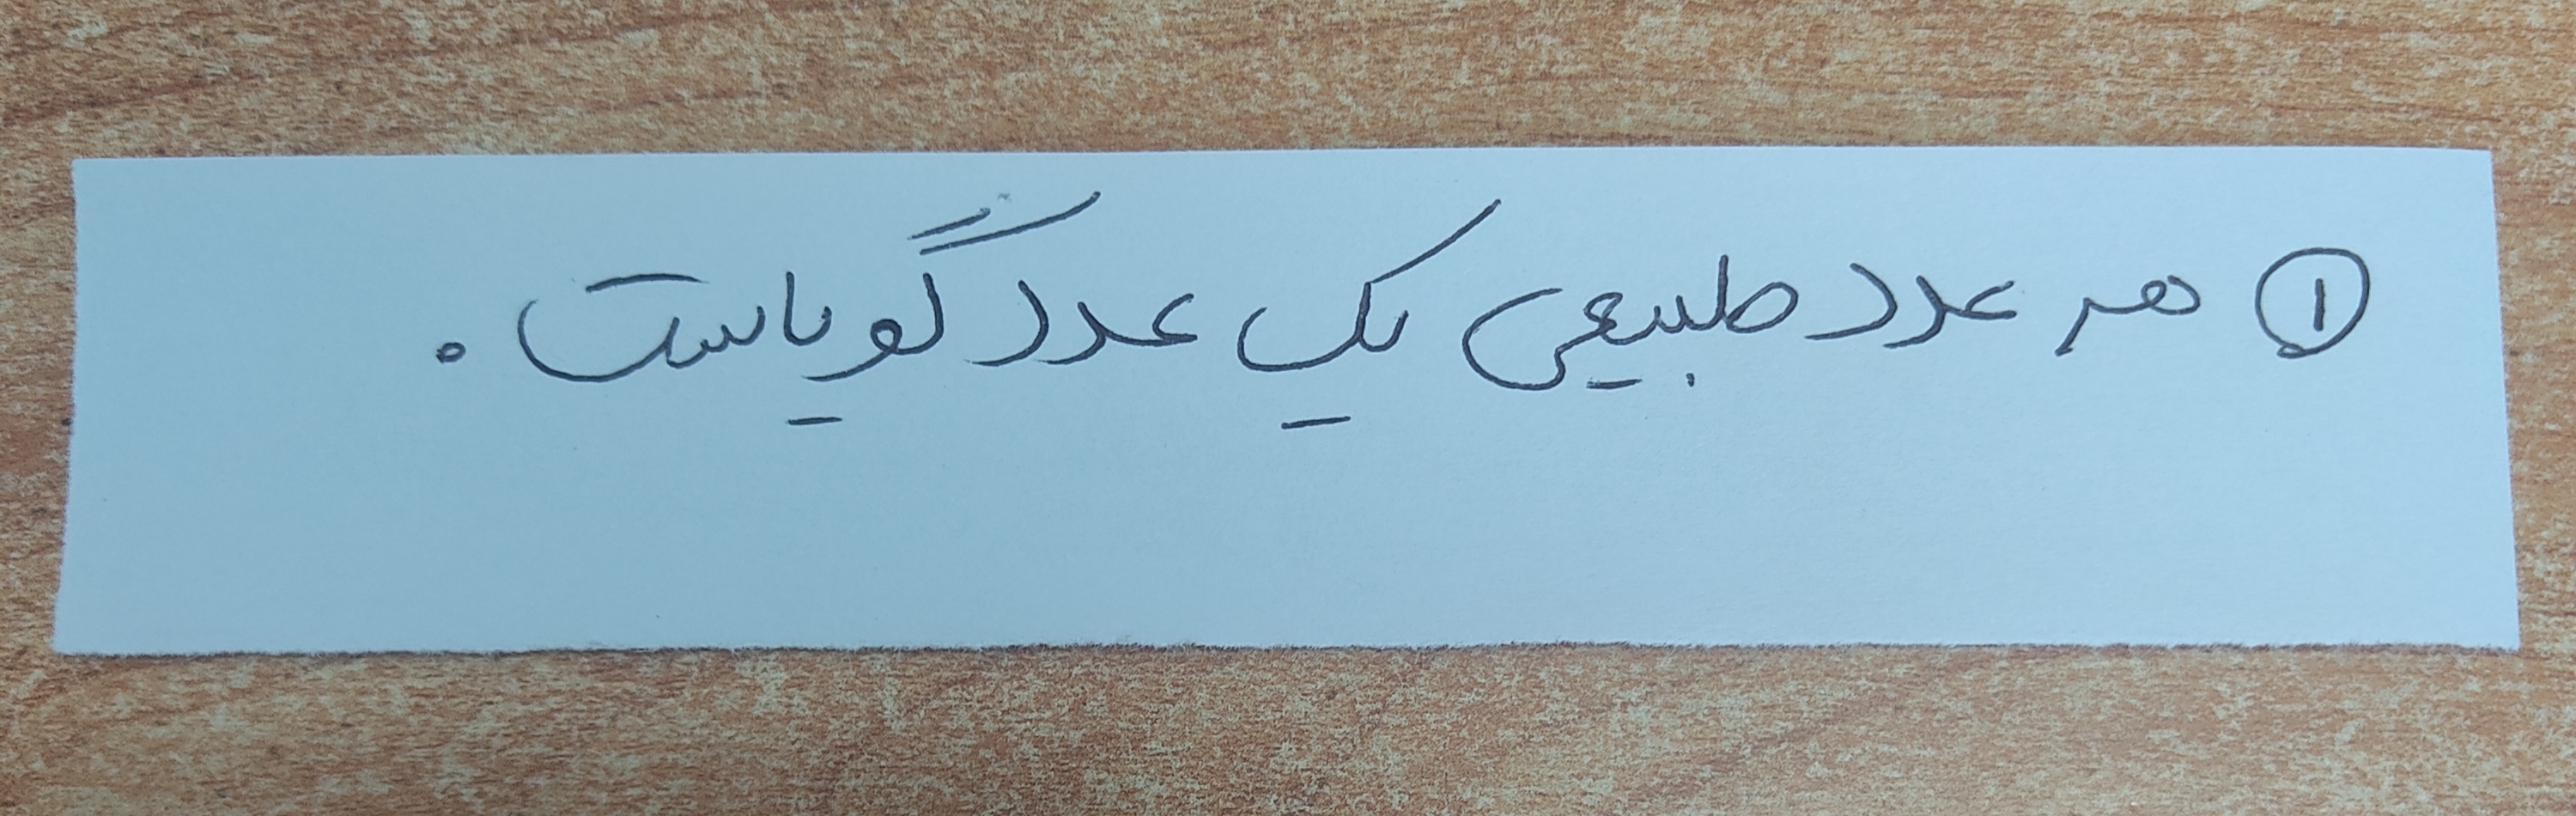 ① هر عدد طبیعی یک عدد گویاست.